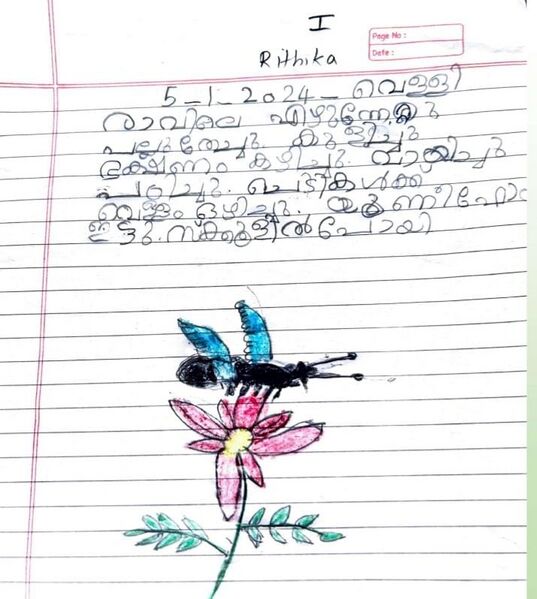 I
Page No :
Rithika
Date :
5-1-2024- വെള്ളി
രാവിലെ എഴുന്നേറ്റു
പല്ലുതേച്ചു. കുളിച്ചു
ഭക്ഷണം കഴിച്ചു. വായിച്ചു
പഠിച്ചു. ചെടികൾക്ക്
വെള്ളം ഒഴിച്ചു. യൂണിഫോം
ഇട്ടു. സ്ക്കൂളിൽ പോയി